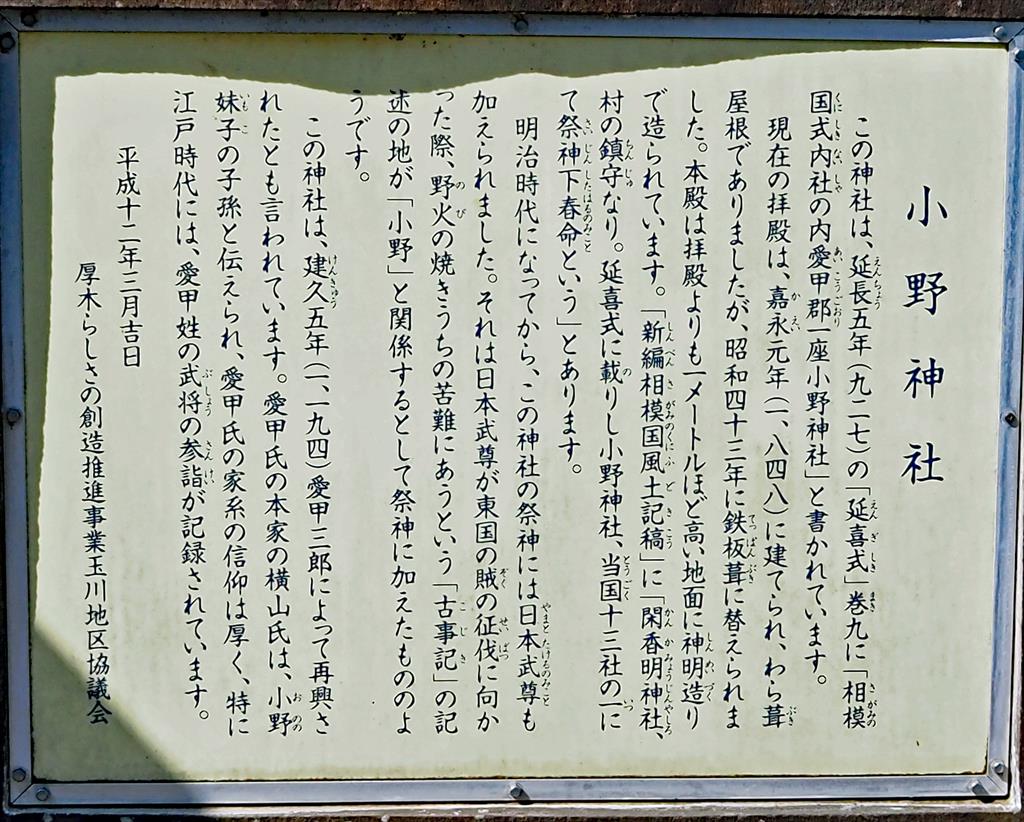 小野神社
この神社は、延長五年（九二七）の「延喜式」巻九に「相模
国式内社の内愛甲郡一座小野神社」と書かれています。
現在の拝殿は、嘉永元年（一、八四八）に建てられ、わら葺
屋根でありましたが、昭和四十三年に鉄板葺に替えられま
した。本殿は拝殿よりも一メートルほど高い地面に神明造り
で造られています。「新編相模国風土記稿」に「閑香明神社、
村の鎮守なり。延喜式に載りし小野神社、当国十三社の一に
て祭神下春命という」とあります。
明治時代になってから、この神社の祭神には日本武尊も
加えられました。それは日本武尊が東国の賊の征伐に向か
った際、野火の焼きうちの苦難にあうという「古事記」の記
述の地が「小野」と関係するとして祭神に加えたもののよ
うです。
この神社は、建久五年（一、一九四）愛甲三郎によって再興さ
れたとも言われています。愛甲氏の本家の横山氏は、小野
妹子の子孫と伝えられ、愛甲氏の家系の信仰は厚く、特に
江戸時代には、愛甲姓の武将の参詣が記録されています。
平成十二年三月吉日
厚木らしさの創造推進事業玉川地区協議会